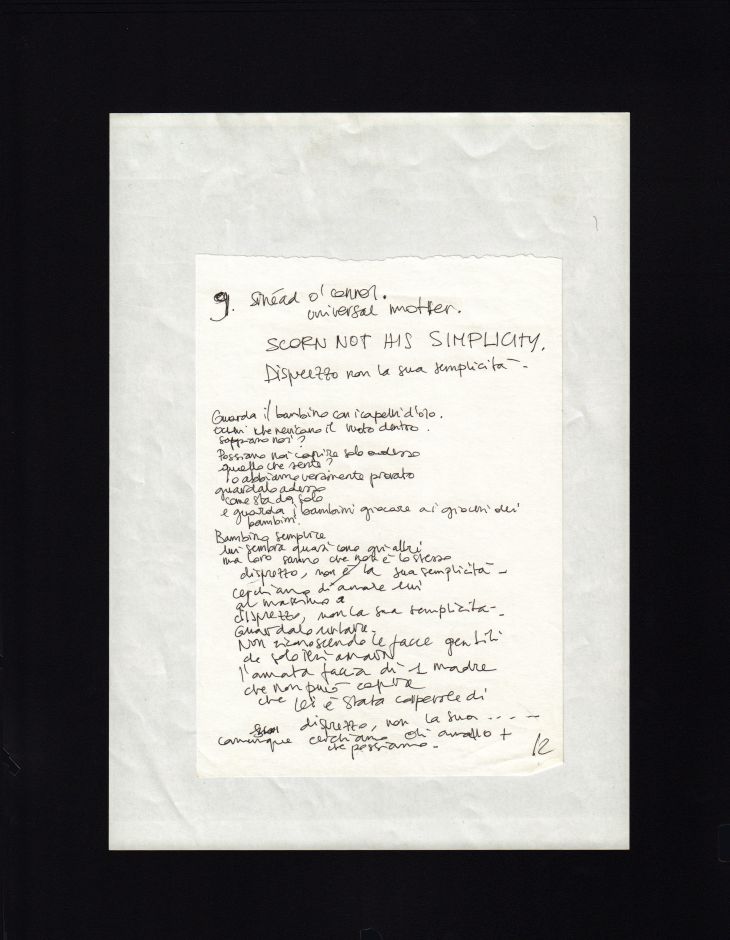 9. Sinéad o'connor.
universal mother.
SCORN NOT HIS SIMPLICITY.
Disprezzo non la sua semplicità -
Guarda il bambino con i capelli d'oro.
occhi che il vuoto dentro.
sappiamo noi?
Possiamo noi capire solo adesso
quello che sente?
lo abbiamo veramente provato
guardalo adesso
come sta da solo
e guarda i bambini giocare ai giochi dei
bambini.
Bambino semplice
lui sembra quasi come gli altri
ma loro sanno che non è lo stesso
disprezzo, non è la sua semplicità -
cerchiamo di amare lui
al massimo
disprezzo, non la sua semplicità -
Guardalo
Non riconoscendo le facce gentili
de solo ieri
l'amata faccia di 1 madre
che non può capire
che lei è stata colpevole di
disprezzo, non la sua - - - -
comunque cerchiamo di amallo +
che possiamo -
12